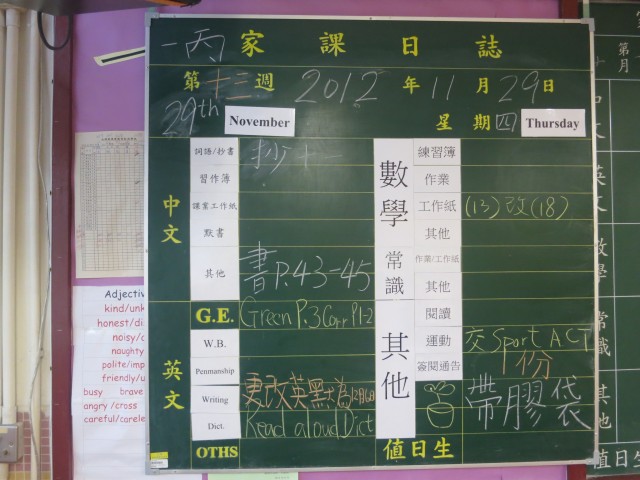 一丙 家課日誌
第十三週 2012年11月29日
29th November 星期四 Thursday
中文
詞語/抄書 抄十一
習作簿
課業工作紙
默書
其他 書P.43-45
G.E. Green P.3 Corr P.1-2
英文
W.B.
Penmanship
Writing 更改英默為
Dict. Read aloud Dict
OTHS
數學
練習簿
作業
工作紙 (13) 改(18)
其他
常識
作業/工作紙
其他
其他
閱讀
運動 交 Sport ACT
簽閱通告 1份
帶膠袋
值日生
Adjectiv
kind/unk
honest/di
noisy/
naughty
polite/imp
friendly/u
busy brave
angry /cross
careful/carele